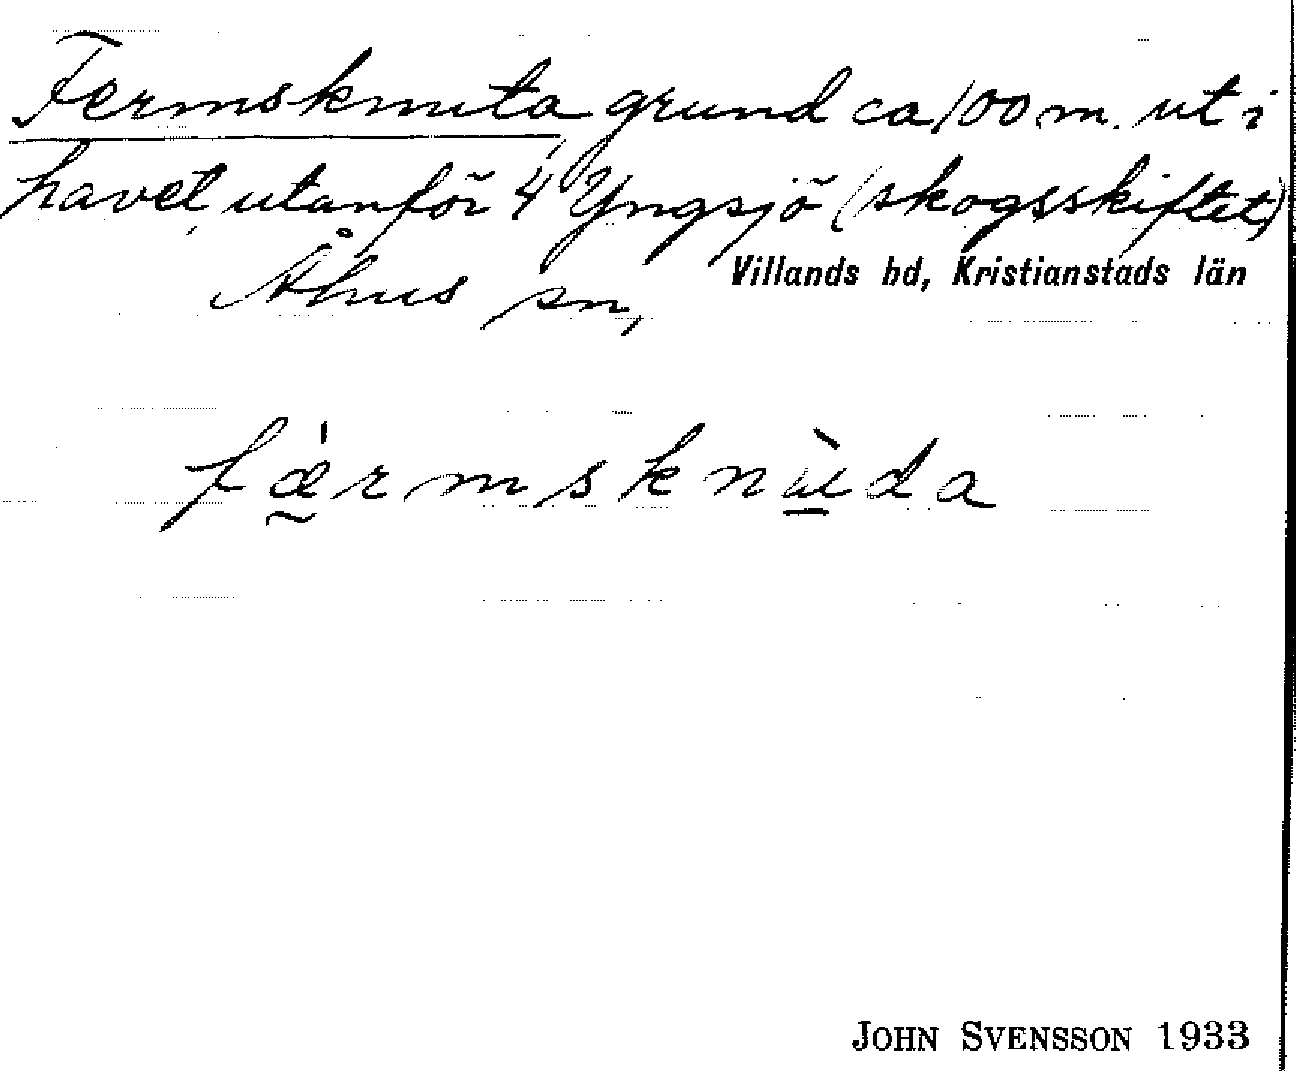 Fermsknuta grund ca 100 m. ut i
havet, utanför 4 Yngsjö (skogsskiftet)
Åhus sn, Villands hd, Kristianstads län
fǽ̰rmsknù̱da
JOHN SVENSSON 1933